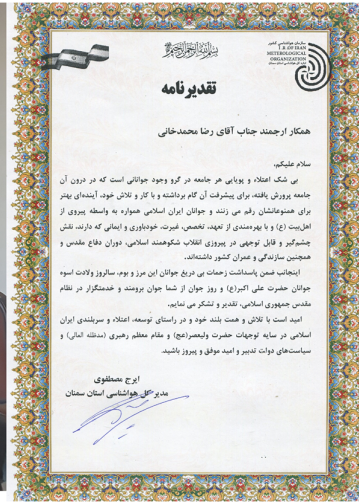 بسم الله الرحمن الرحیم
سازمان هواشناسی کشور
I.R. OF IRAN
METEOROLOGICAL
ORGANIZATION
اداره کل هواشناسی استان سمنان
تقدیرنامه
همکار ارجمند جناب آقای رضا محمدخانی
سلام علیکم،
بی شک اعتلاء و پویایی هر جامعه در گرو وجود جوانانی است که در درون آن
جامعه پرورش یافته، برای پیشرفت آن گام برداشته و با کار و تلاش خود، آینده‌ای بهتر
برای همنوعانشان رقم می زنند و جوانان ایران اسلامی همواره به واسطه پیروی از
اهل‌بیت (ع) و با بهره‌مندی از تعهد، تخصص، غیرت، خودباوری و ایمانی که دارند، نقش
چشم‌گیر و قابل توجهی در پیروزی انقلاب شکوهمند اسلامی، دوران دفاع مقدس و
همچنین سازندگی و عمران کشور داشته‌اند.
اینجانب ضمن پاسداشت زحمات بی دریغ جوانان این مرز و بوم، سالروز ولادت اسوه
جوانان حضرت علی اکبر(ع) و روز جوان از شما جوان برومند و خدمتگزار در نظام
مقدس جمهوری اسلامی، تقدیر و تشکر می نمایم.
امید است با تلاش و همت بلند خود و در راستای توسعه، اعتلاء و سربلندی ایران
اسلامی در سایه توجهات حضرت ولیعصر(عج) و مقام معظم رهبری (مدظله العالی) و
سیاست‌های دولت تدبیر و امید موفق و پیروز باشید.
ایرج مصطفوی
مدیر کل هواشناسی استان سمنان